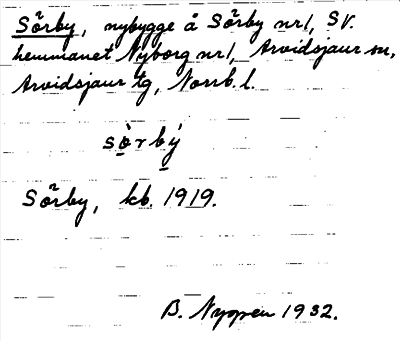 Sörby, nybygge å Sörby nr 1, SV.
hemmanet Nyborg nr 1, Arvidsjaur sn,
Arvidsjaur tg, Norrb. l.
sò̱rbý̱
Sörby, kb. 1919.
B. Nygren 1932.